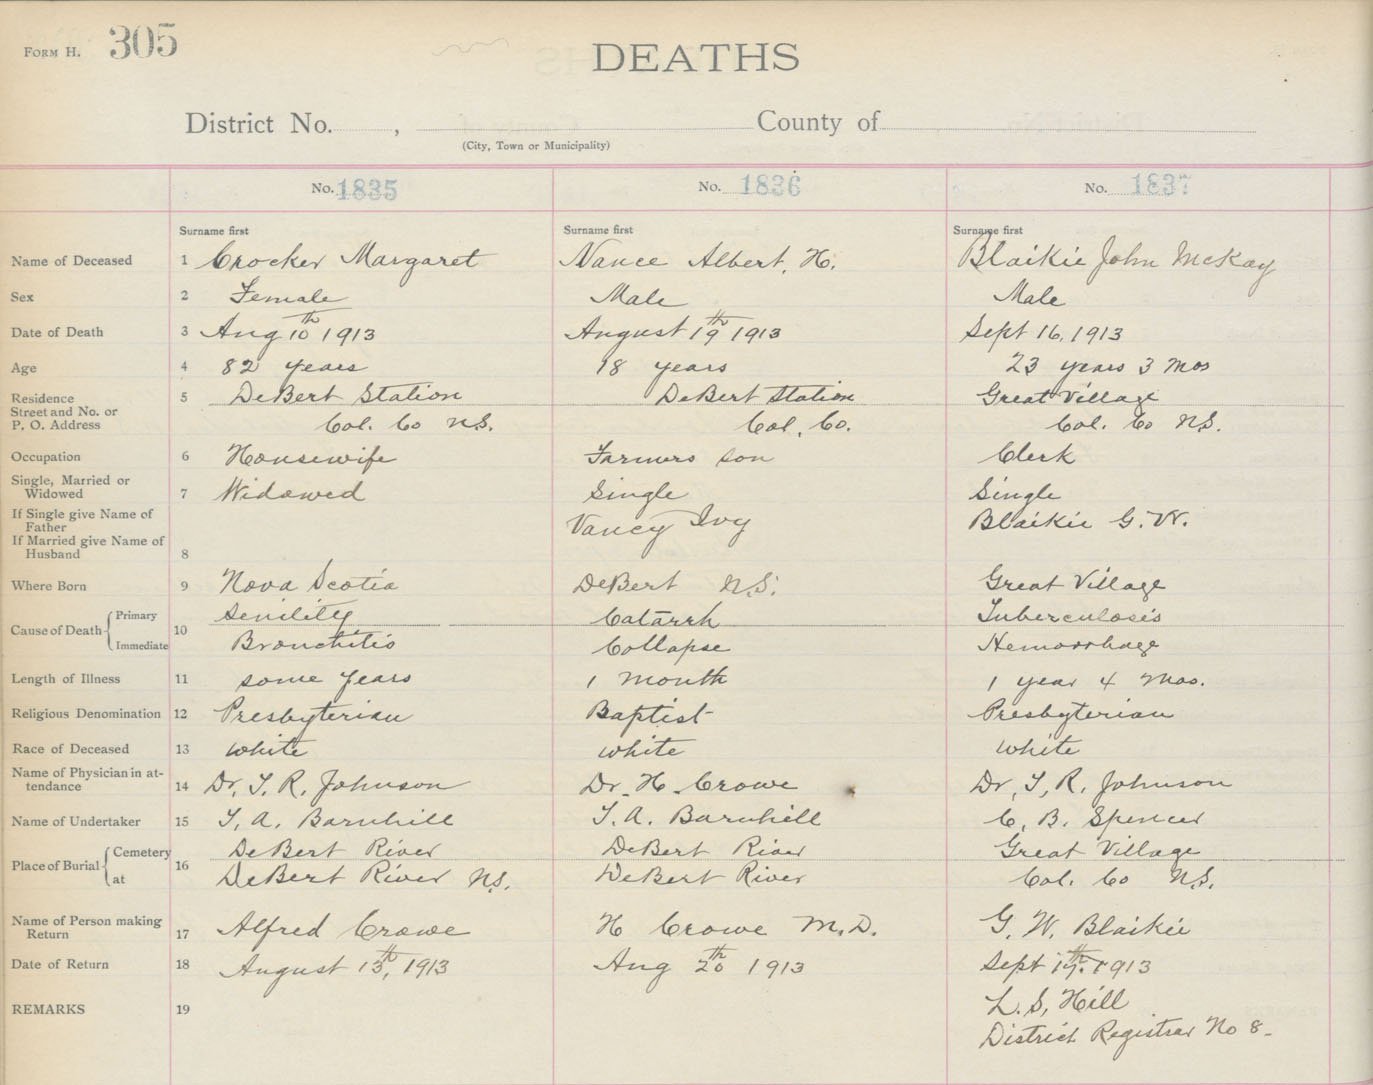 FORM H. 305
DEATHS
District No. , County of
(City, Town or Municipality)
No. 1835 No. 1836 No. 1837
Surname first Surname first Surname first
Name of Deceased 1 Crocker Margaret Vance Albert, H. Blaikie John McKay
Sex 2 Female Male Male
Date of Death 3 Aug 10th 1913 August 19th 1913 Sept 16, 1913
Age 4 82 years 18 years 23 years 3 mos
Residence 5 DeBert Station DeBert Station Great Village
Street and No. or
P. O. Address Col. Co N.S. Col. Co. Col. Co N.S.
Occupation 6 Housewife Farmers son Clerk
Single, Married or
Widowed 7 Widowed Single Single
If Single give Name of
Father Vancey Ivy Blaikie G. W.
If Married give Name of
Husband 8
Where Born 9 Nova Scotia DeBert N.S. Great Village
Cause of Death 10 Primary Senility Catarrh Tuberculosis
Immediate Bronchitis Collapse Hemorrhage
Length of Illness 11 some years 1 month 1 year 4 mos.
Religious Denomination 12 Presbyterian Baptist Presbyterian
Race of Deceased 13 white white white
Name of Physician in at-
tendance 14 Dr, T. R. Johnson Dr. H. Crowe Dr, T, R. Johnson
Name of Undertaker 15 T. A. Barnhill T. A. Barnhill C. B. Spencer
Place of Burial 16 Cemetery DeBert River DeBert River Great Village
at DeBert River N.S. DeBert River Col. Co N.S.
Name of Person making
Return 17 Alfred Crowe H Crowe M.D. G. W. Blaikie
Date of Return 18 August 13th, 1913 Aug 20th 1913 Sept 17th 1913
REMARKS 19 L. S, Hill
District Registrar No 8-